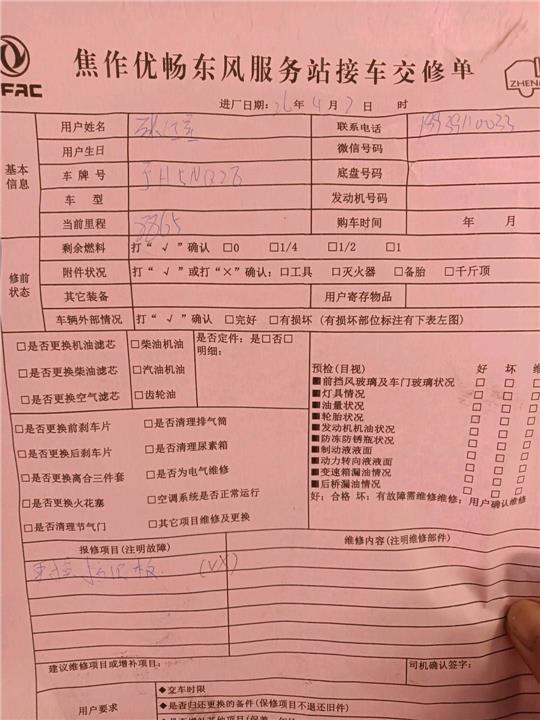 FAC
焦作优畅东风服务站接车交修单
ZHEN
进厂日期：26年4月7日 时
基本信息
用户姓名
联系电话
用户生日
微信号码
车牌号 豫H5N32B
底盘号码
车 型
发动机号码
当前里程 3865
购车时间 年 月
修前状态
剩余燃料 打“√”确认 □0 □1/4 □1/2 □1
附件状况 打“√”或打“×”确认：□工具 □灭火器 □备胎 □千斤顶
其它装备
用户寄存物品
车辆外部情况 打“√”确认 □完好 □有损坏（有损坏部位标注有下表左图）
□是否更换机油滤芯 □柴油机油
□是否更换柴油滤芯 □汽油机油
□是否更换空气滤芯 □齿轮油
是否定件：是□否□
明细：
□是否更换前刹车片 □是否清理排气筒
□是否更换后刹车片 □是否清理尿素箱
□是否更换离合三件套 □是否为电气维修
□是否更换火花塞 □空调系统是否正常运行
□是否清理节气门 □其它项目维修及更换
预检(目视) 好 坏 维
■前挡风玻璃及车门玻璃状况 □ □
■灯具情况 □ □
■油量状况 □ □
■轮胎状况 □ □
■发动机机油状况 □ □
■防冻防锈瓶状况 □ □
■制动液液面 □ □
■动力转向液液面 □ □
■变速箱漏油情况 □ □
■后桥漏油情况 □ □
好：合格 坏：有故障需维修维修：用户确认维修
报修项目(注明故障)
维修内容(注明维修部件)
建议维修项目或增补项目：
司机确认签字：
用户要求
◆交车时限
◆是否归还更换的备件(保修项目不退还旧件)